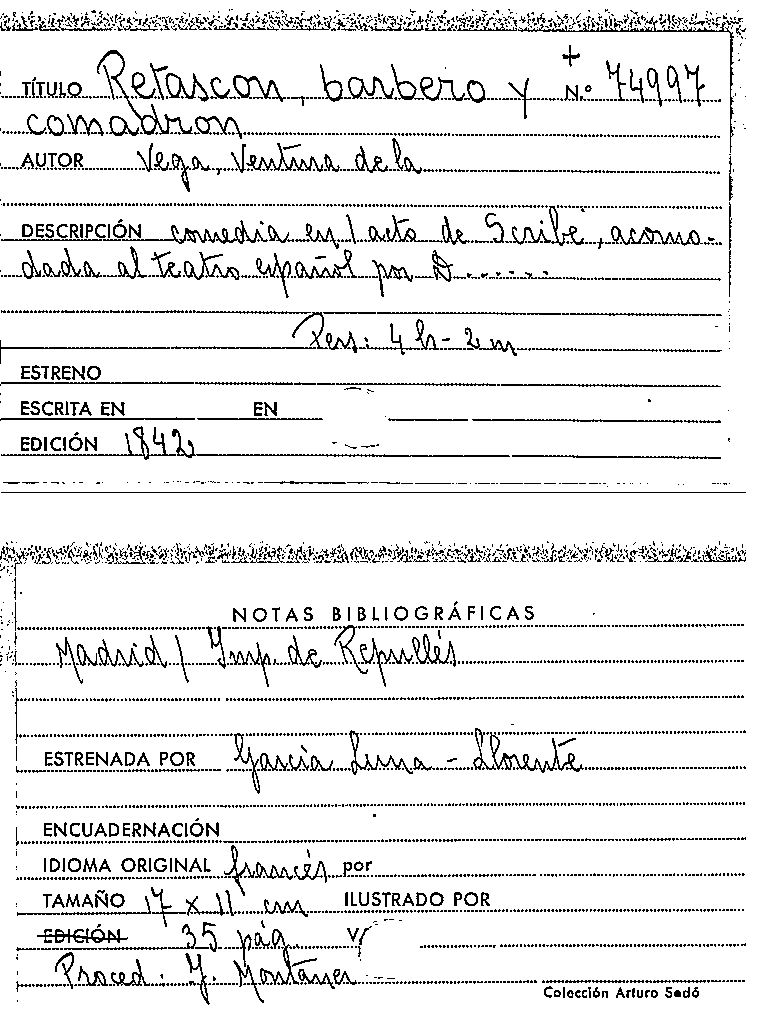 +
TÍTULO Retascon, barbero y N.º 74997
comadron
AUTOR Vega, Ventura de la
DESCRIPCIÓN comedia en 1 acto de Scribe, acomo-
dada al teatro español por D.......
Pers: 4 h - 2 m
ESTRENO
ESCRITA EN EN
EDICIÓN 1842
NOTAS BIBLIOGRÁFICAS
Madrid / Imp. de Repullés
ESTRENADA POR García Luna - Llorente
ENCUADERNACIÓN
IDIOMA ORIGINAL francés por
TAMAÑO 17 x 11 cm ILUSTRADO POR
EDICIÓN 35 pág. V
Proced. J. Montaner
Colección Arturo Sedó